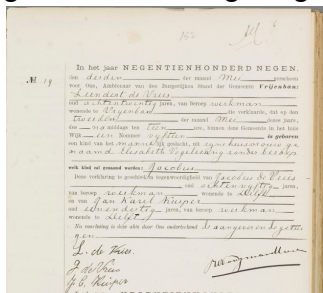 152
N. 19
In het jaar NEGENTIENHONDERD NEGEN,
den derden der maand Mei verscheen
voor Ons, Ambtenaar van den Burgerlijken Stand der Gemeente Vrijenban:
Leendert de Vries
oud achtentwintig jaren, van beroep werkman
wonende te Vrijenban die verklaarde, dat op den
tweeden der maand Mei dezes jaars,
des namiddags ten tien ure, binnen deze Gemeente in het huis
Wijk een Nommer vijftien is geboren
een kind van het mannelijk geslacht, uit zijne huisvrouw ge
naamd Elisabeth Vogelezang zonder beroep
welk kind zal genaamd worden Jacobus
Deze verklaring is geschied in tegenwoordigheid van Jacobus de Vries
oud achtenvijftig jaren,
van beroep werkman wonende te Delft
en van Jan Karel Kuiper
oud zevenendertig jaren, van beroep werkman
wonende te Delft
Na voorlezing is deze akte door Ons onderteekend de aangever en de getui
gen
L. de Vries.
J de Vries
J C. Kuiper